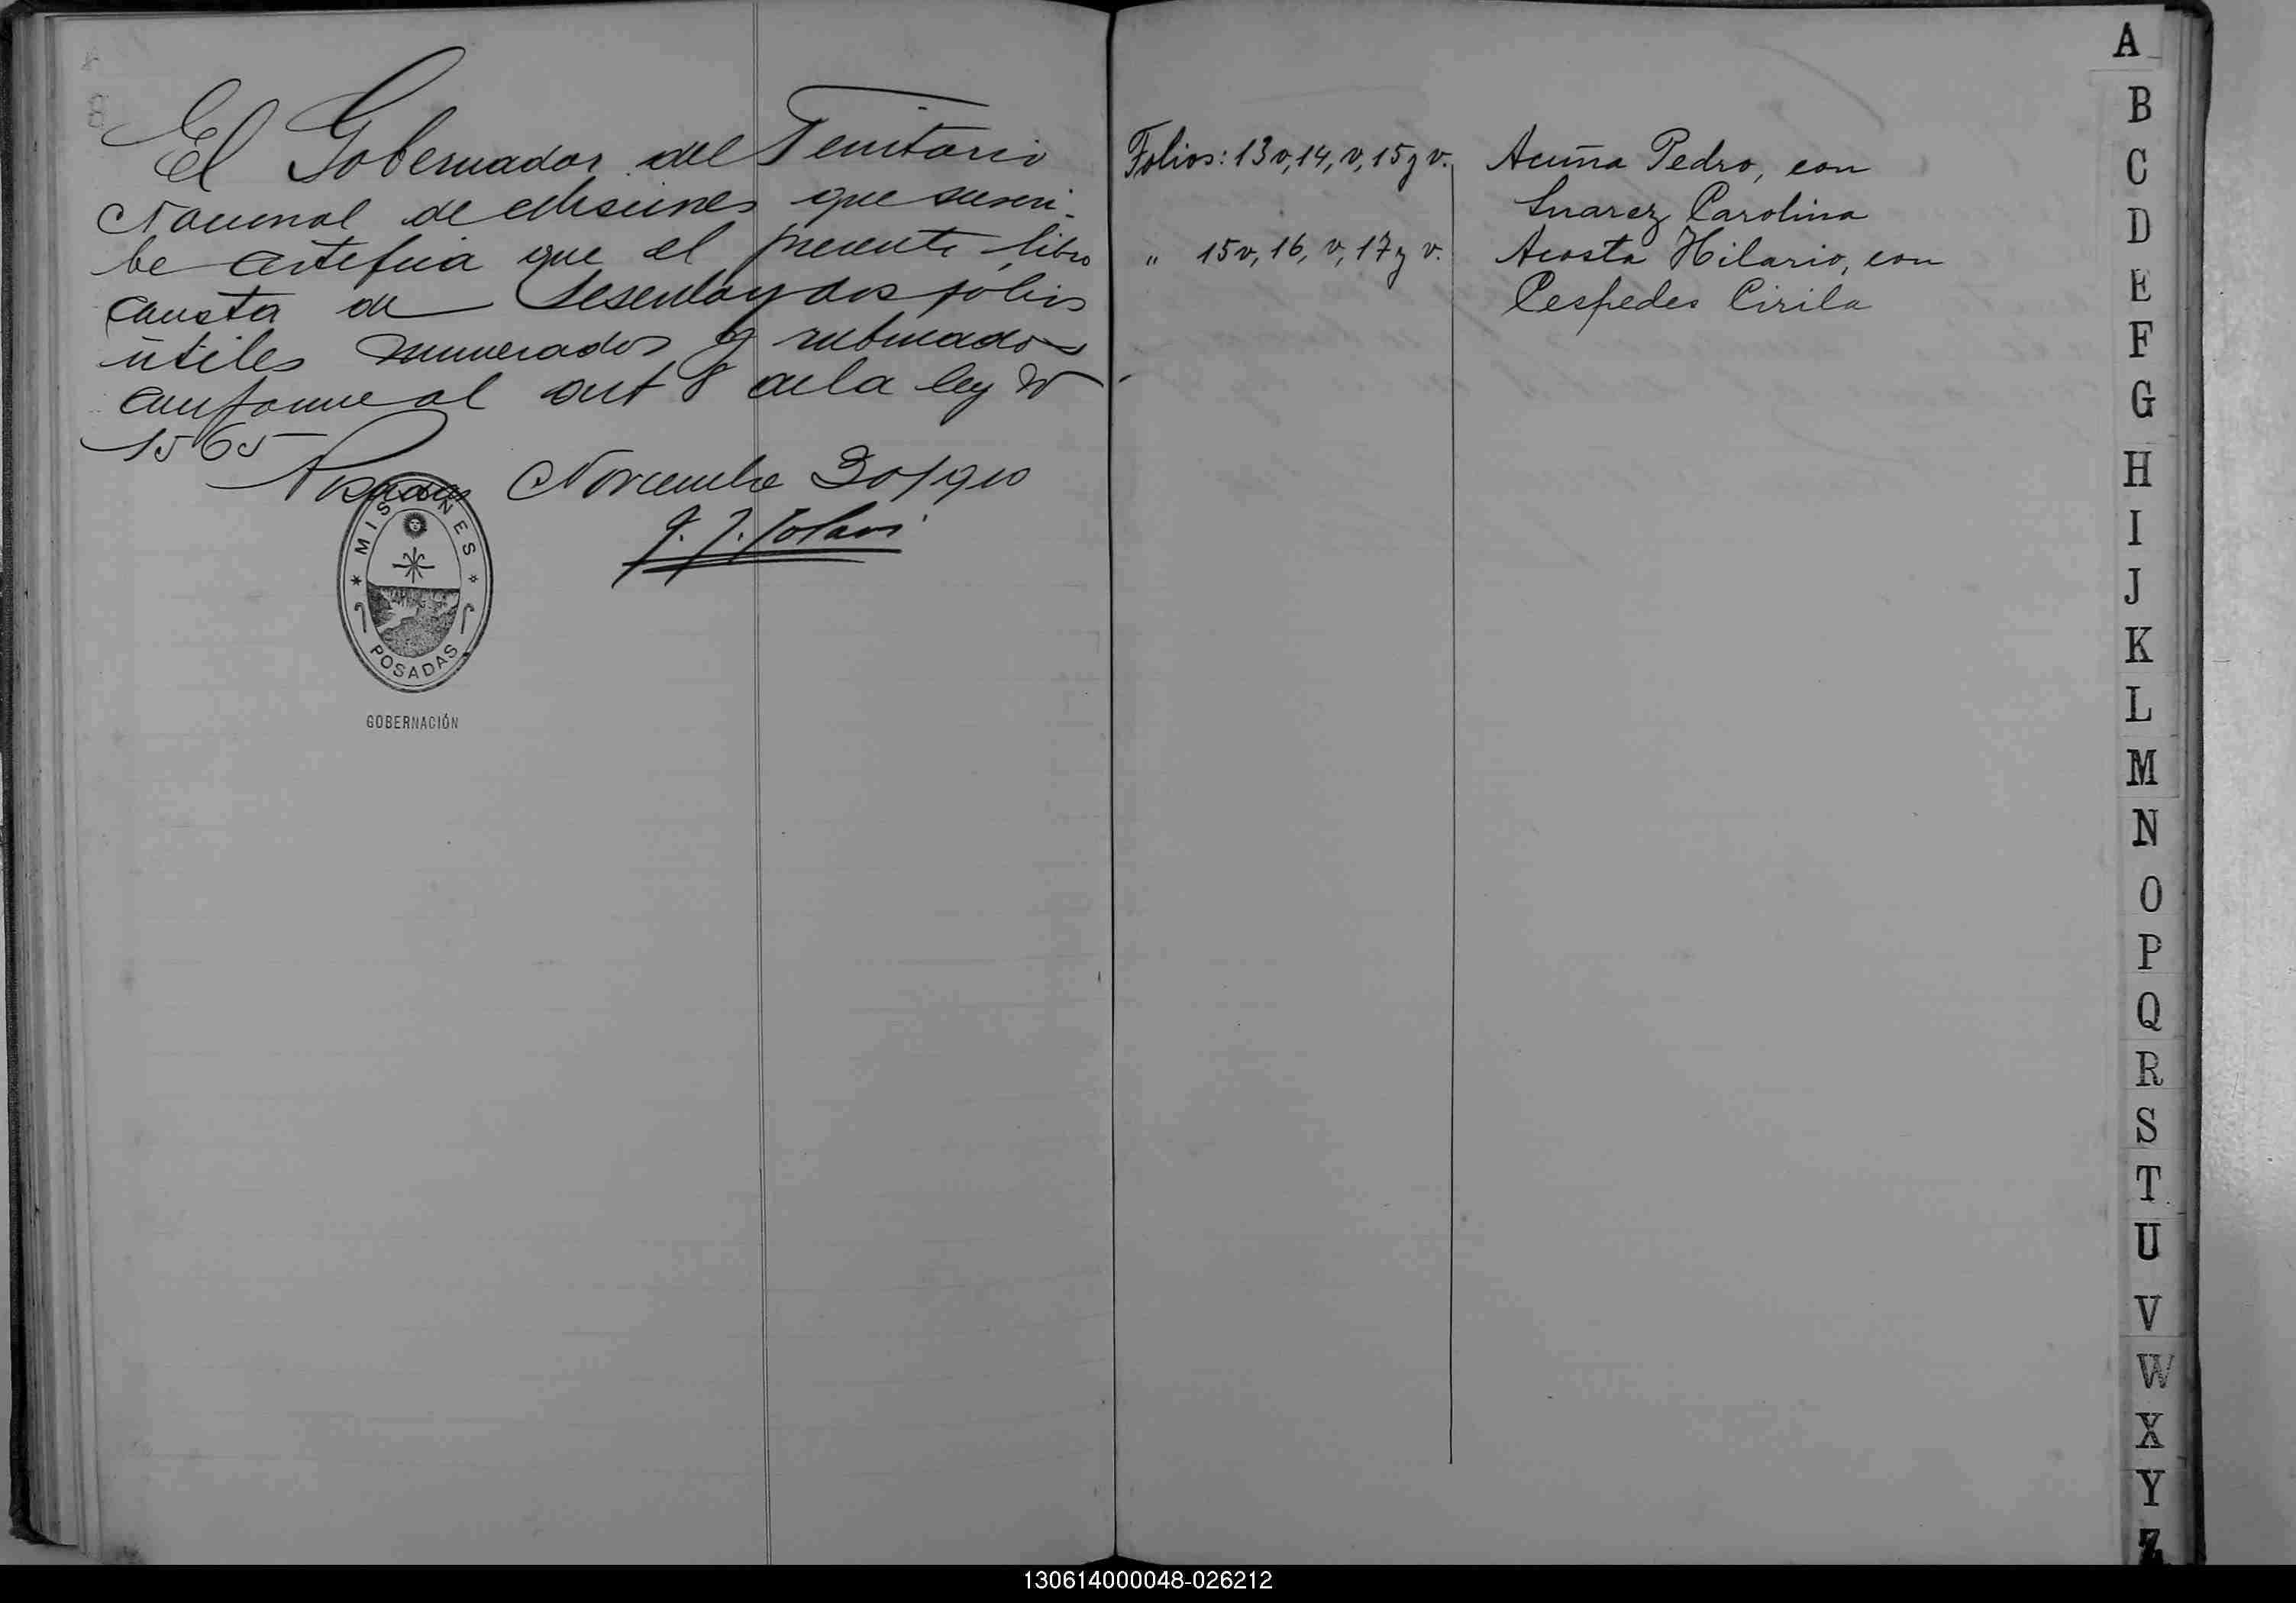 El Gobernador del Territorio
Nacional de Misiones que suscri-
be certifica que el presente libro
consta de sesenta y dos folios
útiles numerados y rubricados
conforme al art 8 de la ley Nº
1565
Posadas Noviembre 30/910
MISIONES
POSADAS
GOBERNACIÓN
Folios: 13v, 14, v, 15 y v. Acuña Pedro, con
Suarez Carolina
" 15v, 16, v, 17 y v. Acosta Hilario, con
Cespedes Cirila
A
B
C
D
E
F
G
H
I
J
K
L
M
N
O
P
Q
R
S
T
U
V
W
X
Y
Z
130614000048-026212